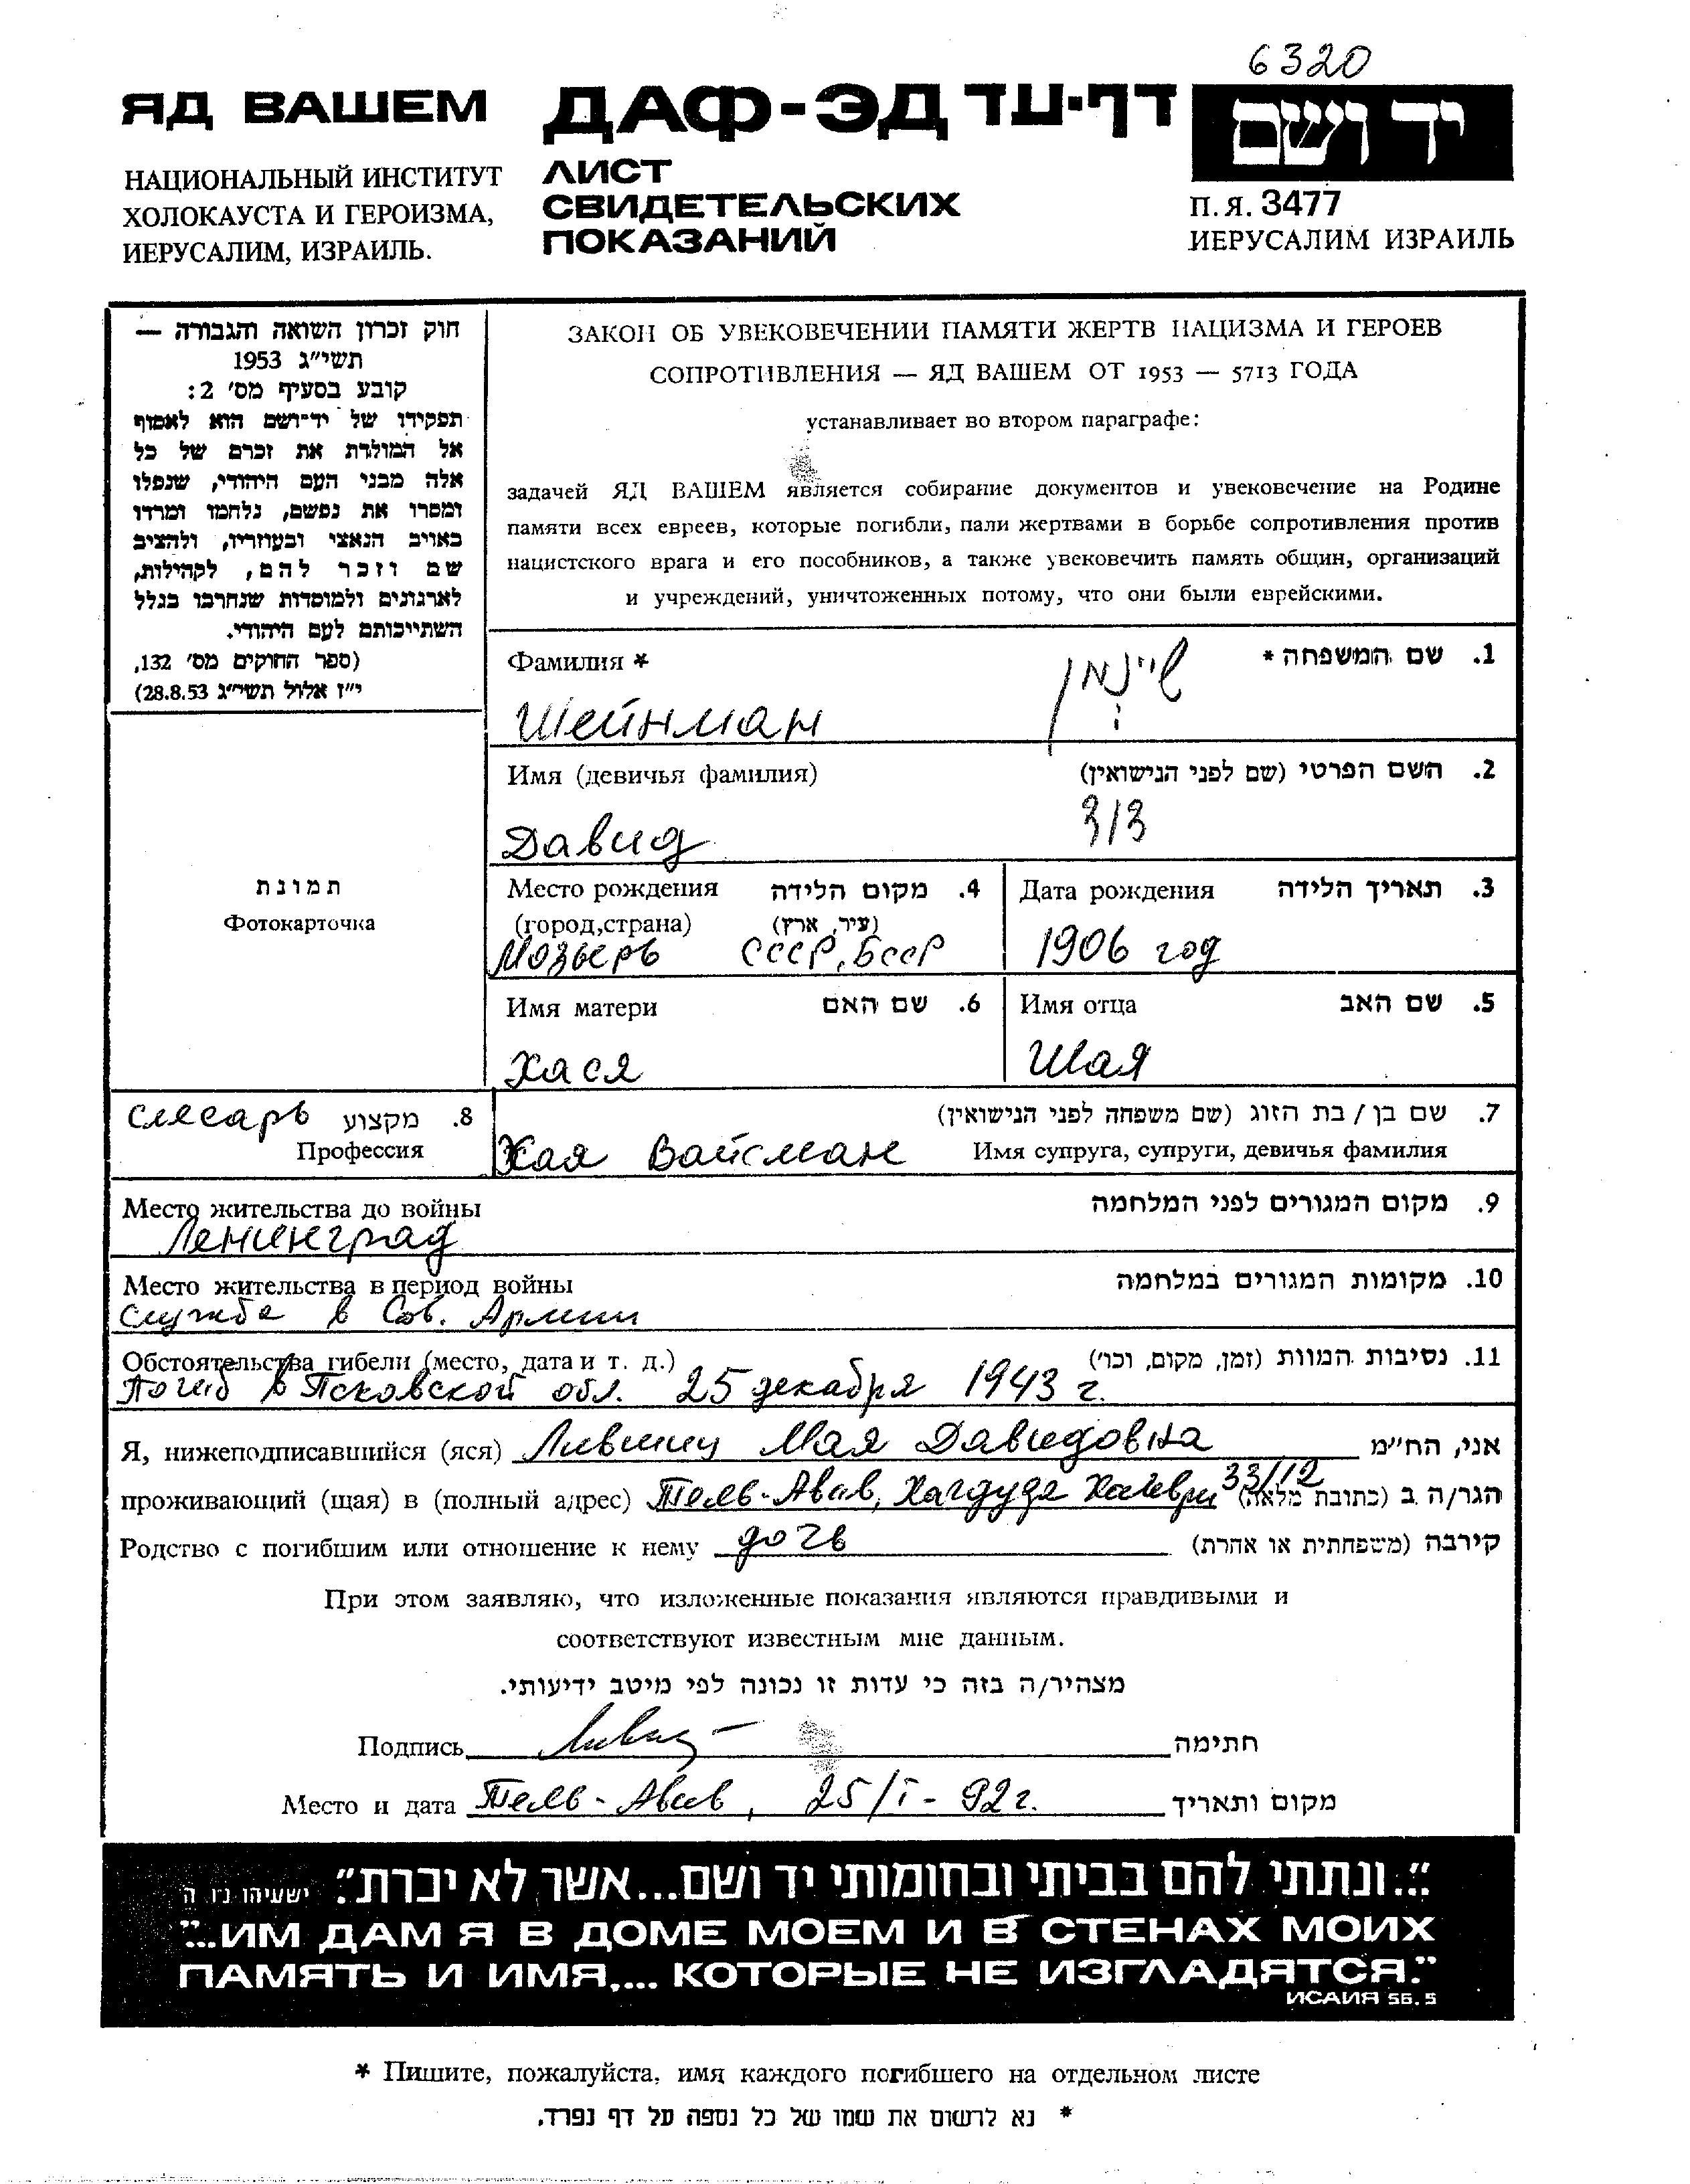 6320
ЯД ВАШЕМ
НАЦИОНАЛЬНЫЙ ИНСТИТУТ
ХОЛОКАУСТА И ГЕРОИЗМА,
ИЕРУСАЛИМ, ИЗРАИЛЬ.
ДАФ-ЭД דף-עד
ЛИСТ
СВИДЕТЕЛЬСКИХ
ПОКАЗАНИЙ
יד ושם
П.Я. 3477
ИЕРУСАЛИМ ИЗРАИЛЬ
חוק זכרון השואה והגבורה —
תשי״ג 1953
קובע בסעיף מס׳ 2:
תפקידו של יד־ושם הוא לאסוף
אל המולדת את זכרם של כל
אלה מבני העם היהודי, שנפלו
ומסרו את נפשם, נלחמו ומרדו
באויב הנאצי ובעוזריו, ולהציב
שם וזכר להם, לקהילות,
לארגונים ולמוסדות שנחרבו בגלל
השתייכותם לעם היהודי.
(ספר החוקים מס׳ 132,
י״ז אלול תשי״ג 28.8.53)
ЗАКОН ОБ УВЕКОВЕЧЕНИИ ПАМЯТИ ЖЕРТВ НАЦИЗМА И ГЕРОЕВ
СОПРОТИВЛЕНИЯ — ЯД ВАШЕМ ОТ 1953 — 5713 ГОДА
устанавливает во втором параграфе:
задачей ЯД ВАШЕМ является собирание документов и увековечение на Родине
памяти всех евреев, которые погибли, пали жертвами в борьбе сопротивления против
нацистского врага и его пособников, а также увековечить память общин, организаций
и учреждений, уничтоженных потому, что они были еврейскими.
Фамилия * 1. שם המשפחה *
Шейнман שיינמן
Имя (девичья фамилия) 2. השם הפרטי (שם לפני הנישואין)
Давид דוד
תמונת
Фотокарточка
Место рождения 4. מקום הלידה
(город,страна) (עיר, ארץ)
Мозырь СССР, БССР
Дата рождения 3. תאריך הלידה
1906 год
Имя матери 6. שם האם
Хася
Имя отца 5. שם האב
Шая
слесарь 8. מקצוע
Профессия
7. שם בן / בת הזוג (שם משפחה לפני הנישואין)
Хая Вайсман Имя супруга, супруги, девичья фамилия
Место жительства до войны 9. מקום המגורים לפני המלחמה
Ленинград
Место жительства в период войны 10. מקומות המגורים במלחמה
служба в Сов. Армии
Обстоятельства гибели (место, дата и т. д.) 11. נסיבות המוות (זמן, מקום, וכו׳)
Погиб в Псковской обл. 25 декабря 1943 г.
Я, нижеподписавшийся (яся) Лившиц Мая Давидовна אני, הח״מ
проживающий (щая) в (полный адрес) Тель-Авив, Хагдуда Хаиври 33/12 הגר/ה ב (כתובת מלאה)
Родство с погибшим или отношение к нему дочь קירבה (משפחתית או אחרת)
При этом заявляю, что изложенные показания являются правдивыми и
соответствуют известным мне данным.
מצהיר/ה בזה כי עדות זו נכונה לפי מיטב ידיעותי.
Подпись חתימה
Место и дата Тель-Авив, 25/I-92 г. מקום ותאריך
״...ונתתי להם בביתי ובחומותי יד ושם...אשר לא יכרת״. ישעיהו נו ה
"...ИМ ДАМ Я В ДОМЕ МОЕМ И В СТЕНАХ МОИХ
ПАМЯТЬ И ИМЯ,... КОТОРЫЕ НЕ ИЗГЛАДЯТСЯ."
ИСАИЯ 56.5
* Пишите, пожалуйста, имя каждого погибшего на отдельном листе
* נא לרשום את שמו של כל נספה על דף נפרד.